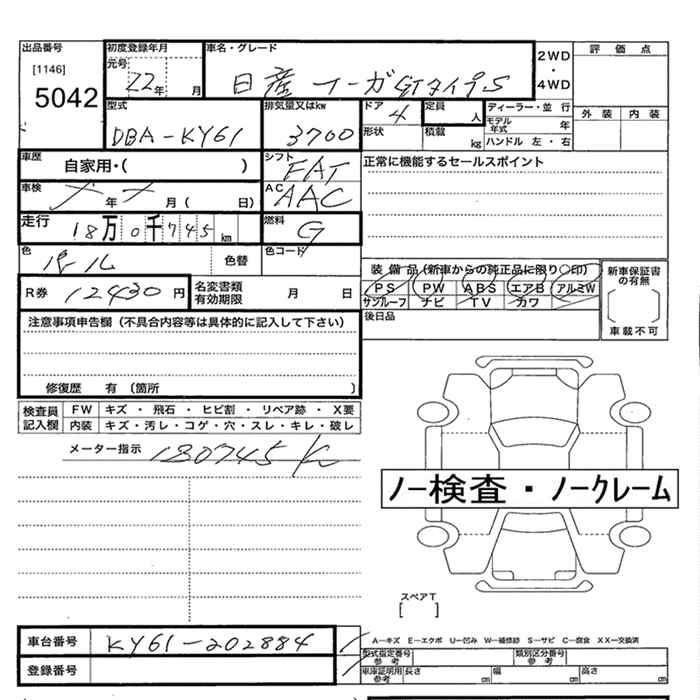 出品番号
[1146]
5042
初度登録年月
元号
22年 月
車名・グレード
日産 フーガGTタイプS
2WD
・
4WD
評価点
外装 内装
型式
DBA-KY61
排気量又はkw
3700
ドア
4
形状
定員
人
積載
kg
ディーラー・並行
モデル年式 年
ハンドル 左・右
車歴
自家用・( )
シフト
FAT
正常に機能するセールスポイント
車検
年 月( 日)
AC
AAC
走行
18万0千745km
燃料
G
色
パール
色替
色コード
装備品(新車からの純正品に限り〇印)
PS PW ABS エアB アルミW
サンルーフ ナビ TV カワ
新車保証書の有無
車載不可
R券 12430円
名変書類有効期限 月 日
後日品
注意事項申告欄(不具合内容等は具体的に記入して下さい)
修復歴 有(箇所 )
検査員記入欄
FW キズ・飛石・ヒビ割・リペア跡・X要
内装 キズ・汚レ・コゲ・穴・スレ・キレ・破レ
メーター指示 180745K
ノー検査・ノークレーム
スペアT
[ ]
車台番号 KY61-202884
登録番号
A―キズ E―エクボ U―凹み W―補修跡 S―サビ C―腐食 XX―交換済
型式指定番号 参考
類別区分番号 参考
車庫証明用 参考 長さ cm 幅 cm 高さ cm